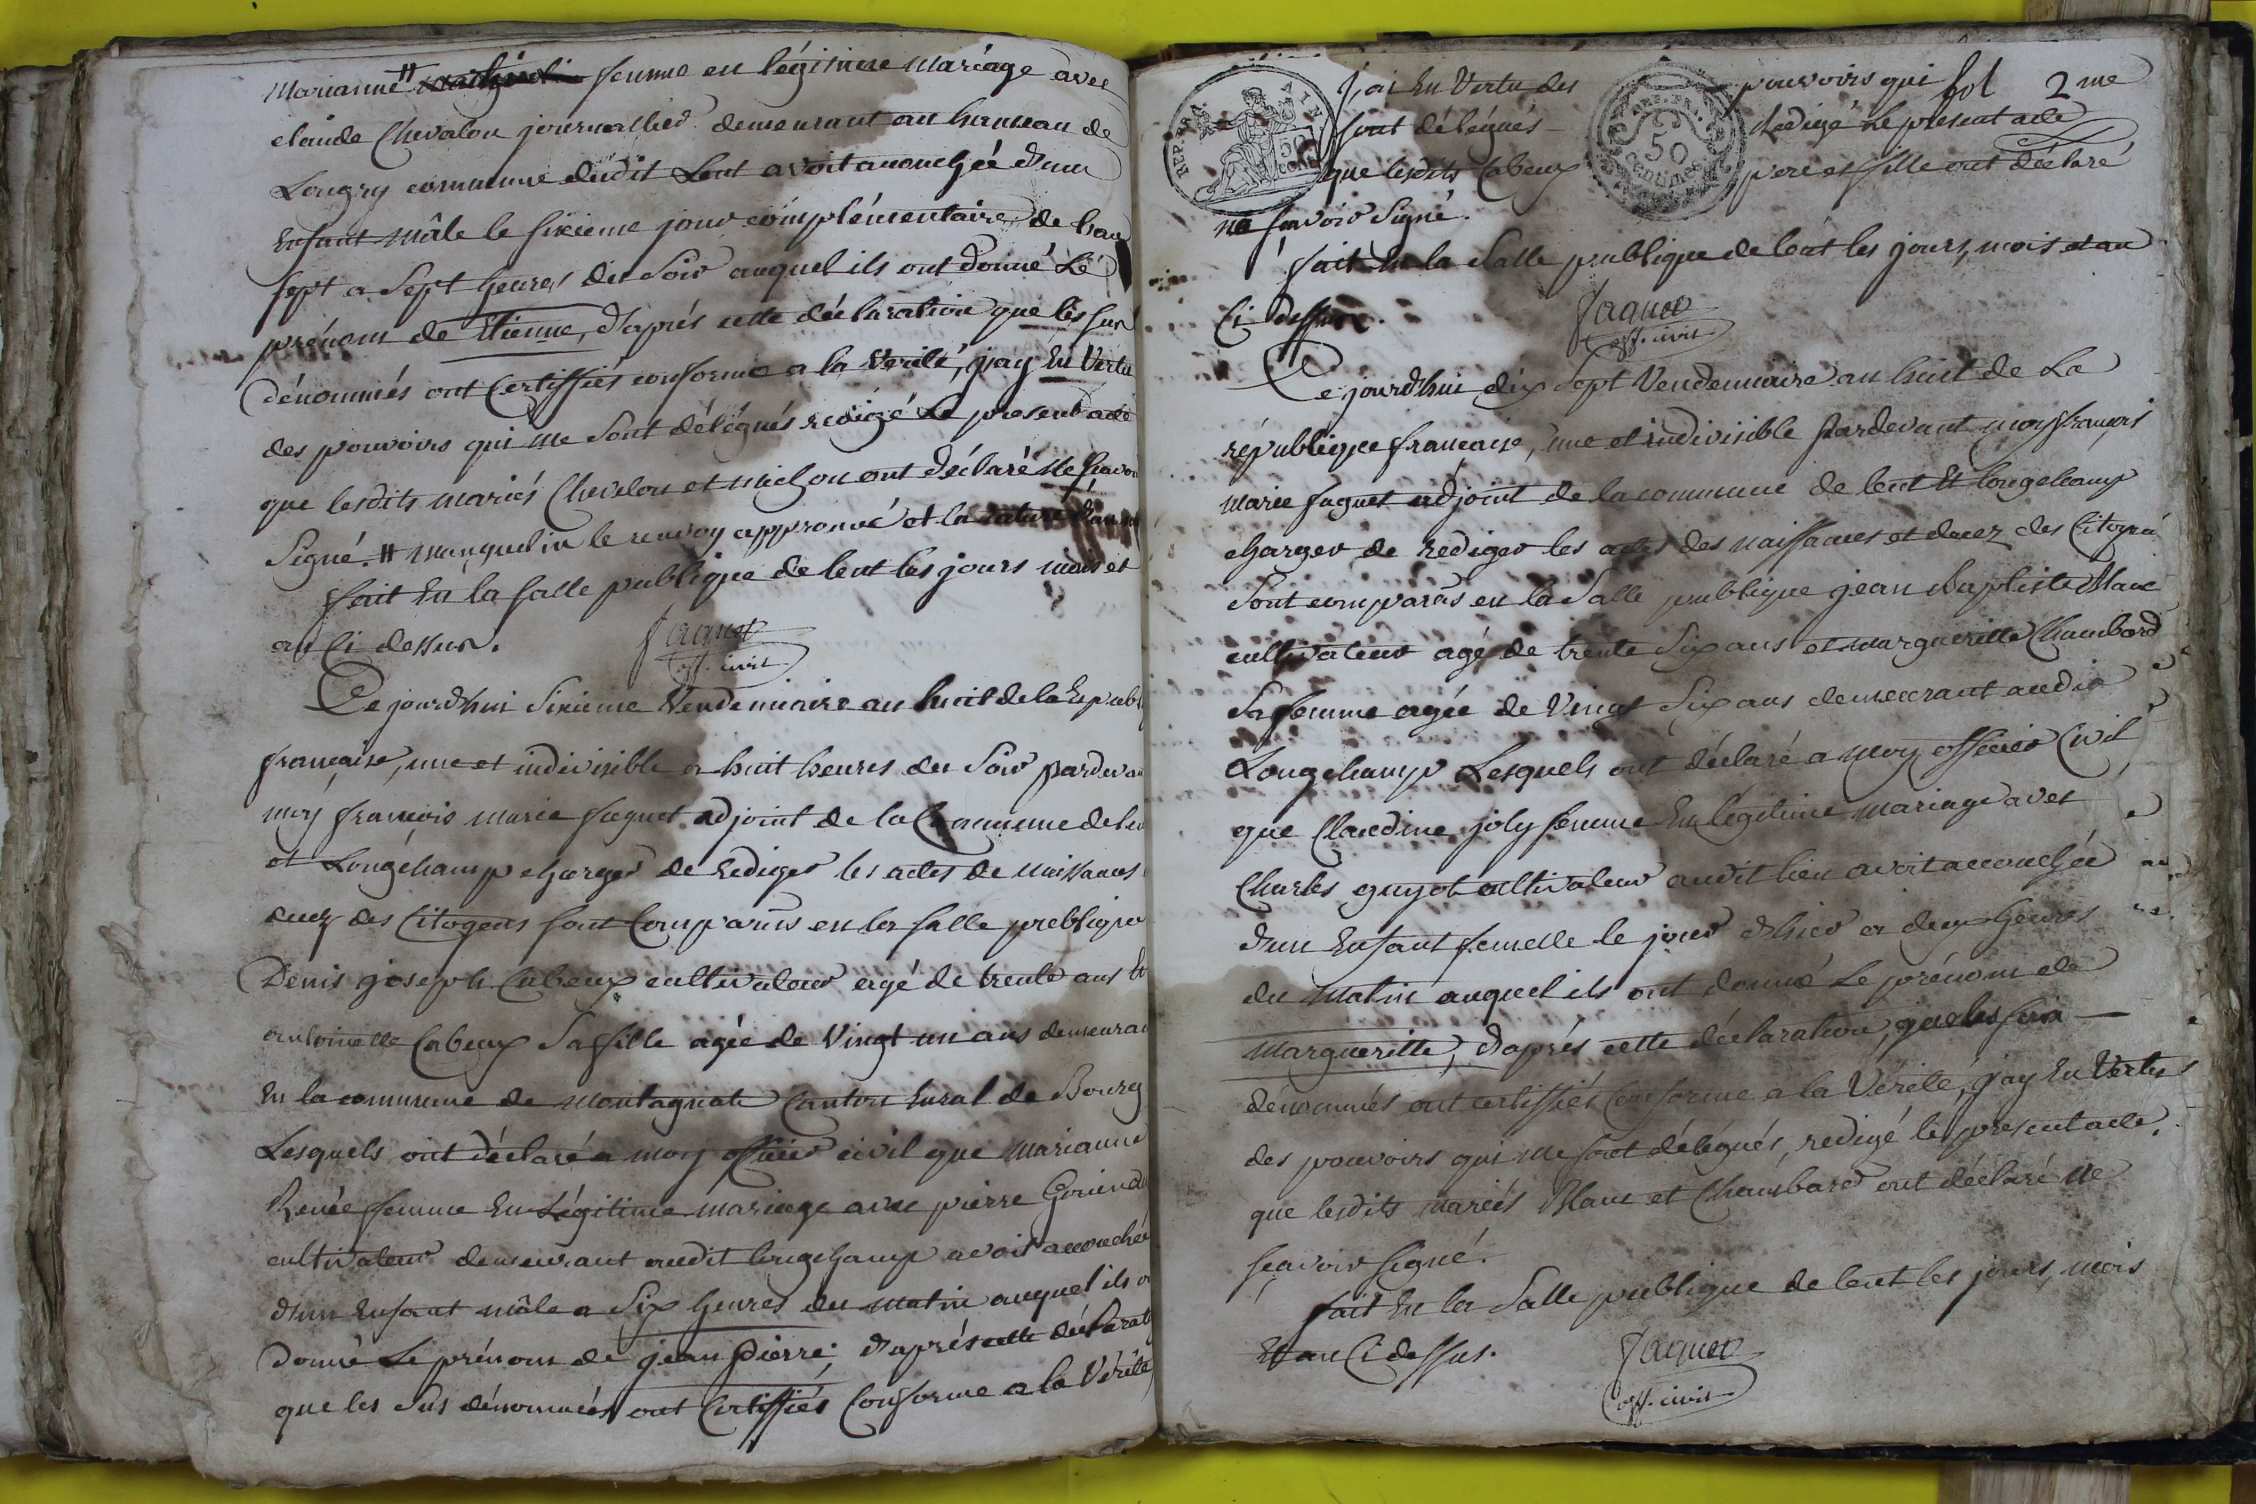 Marianne # femme en légitime mariage avec
claude Chevalon journallier demeurant au hameau de
Longry commune dudit Lent avoit accouchée d'un
Enfant mâle le sixieme jour complémentaire de l'an
sept a Sept heures du Soir auquel ils ont donné Le
prénom de Etienne, d'aprés cette déclaration que les sus
dénommés ont Certiffiés conforme a la Verité, jay En Vertu
des pouvoirs qui me Sont délégués redigé Le present acte
que lesdits mariés Chevalon et michon ont déclaré ne sçavoir
Signé. # manquelin le renvoy approuvé et la rature
fait En la salle publique de lent les jours mois et
an Ci dessus.
faguet
off. civil
Ce jourd'hui Sixieme Vendemiaire an huit de la Republ
française, une et indivisible a huit heures du Soir pardevant
moy françois marie faguet adjoint de la Commune de lent
et Longchamp charger de rediger les actes de naissances
decez des Citoyens sont Comparus en la salle publique
Denis joseph Cabeux cultivateur agé de trente ans Et
antoinette Cabeux Sa fille agée de Vingt un ans demeurant
En la commune de montagnat Canton Rural de Bourg
Lesquels ont déclaré a moy officier civil que Marianne
Renée femme En Légitime mariage avec pierre
cultivateur demeurant audit longchamp avoit accouchée
d'un Enfant mâle a Six heures du matin auquel ils ont
donné Le prénom de jean pierre; d'aprés cette déclarat
que les Sus dénommés ont Certiffiés Conforme a la Vérité
J'ai En Vertu des pouvoirs qui fol 2me
sont délégués Redigé Le présent acte
que lesdits Cabeux pere et fille ont déclaré
ne savoir Signé.
fait En la Salle publique de lent les jours, mois et an
Ci dessus.
REP. FRA. AIN
50 cent
50 centimes
faguet
off. civil
Ce jourd'hui dix Sept Vendemiaire an huit de La
république française, une et indivisible pardevant moy françois
marie faguet adjoint de la commune de lent Et longchamp
charger de rediger les actes des naissances et decez des Citoyens
Sont comparus en la Salle publique jean Baptiste Blanc
cultivateur agé de trente Six ans et margueritte Chambard
Sa femme agée de Vingt Six ans demeurant audit
Longchamp Lesquels ont déclaré a moy officier Civil
que Claudine joly femme En légitime mariage avec
Charles guyot cultivateur audit lieu avoit accouchée
d'un Enfant femelle le jour d'hier a deux heures
du Matin auquel ils ont donné Le prénom de
margueritte, d'aprés cette déclaration, que les sus
dénommés ont certiffiés Conforme a la Vérité, j'ay En Vertu
des pouvoirs qui me sont délégués, redigé le present acte.
que lesdits mariés Blanc et Chambard ont déclaré ne
sçavoir signé.
fait En la Salle publique de lent les jours, mois
Et an Ci dessus.
faguet
off. civil